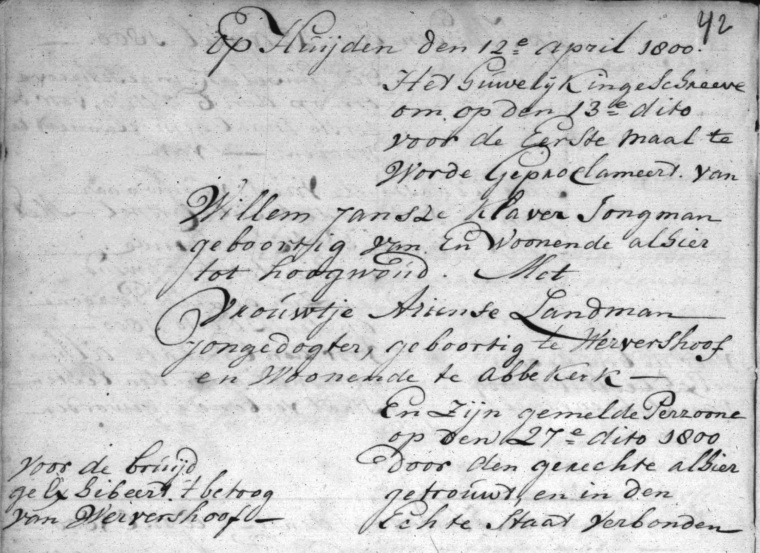 42
Op Huijden den 12e april 1800.
Het huwelijk ingeschreeve
om op den 13e dito
voor de Eerste maal te
Worde Geproclameert. van
Willem Jansze Klaver Jongman
geboortig van En Woonende alhier
tot hoogwoud. Met
Vrouwtje Ariense Landman
jongedogter, geboortig te Wervershoof
en Woonende te abbekerk —
En Zijn gemelde Perzoone
op den 27e dito 1800
Door den gerechte alhier
getrouwt, en in den
Echte Staat verbonden
voor de bruijd
gexhibeert t betoog
van Wervershoof —